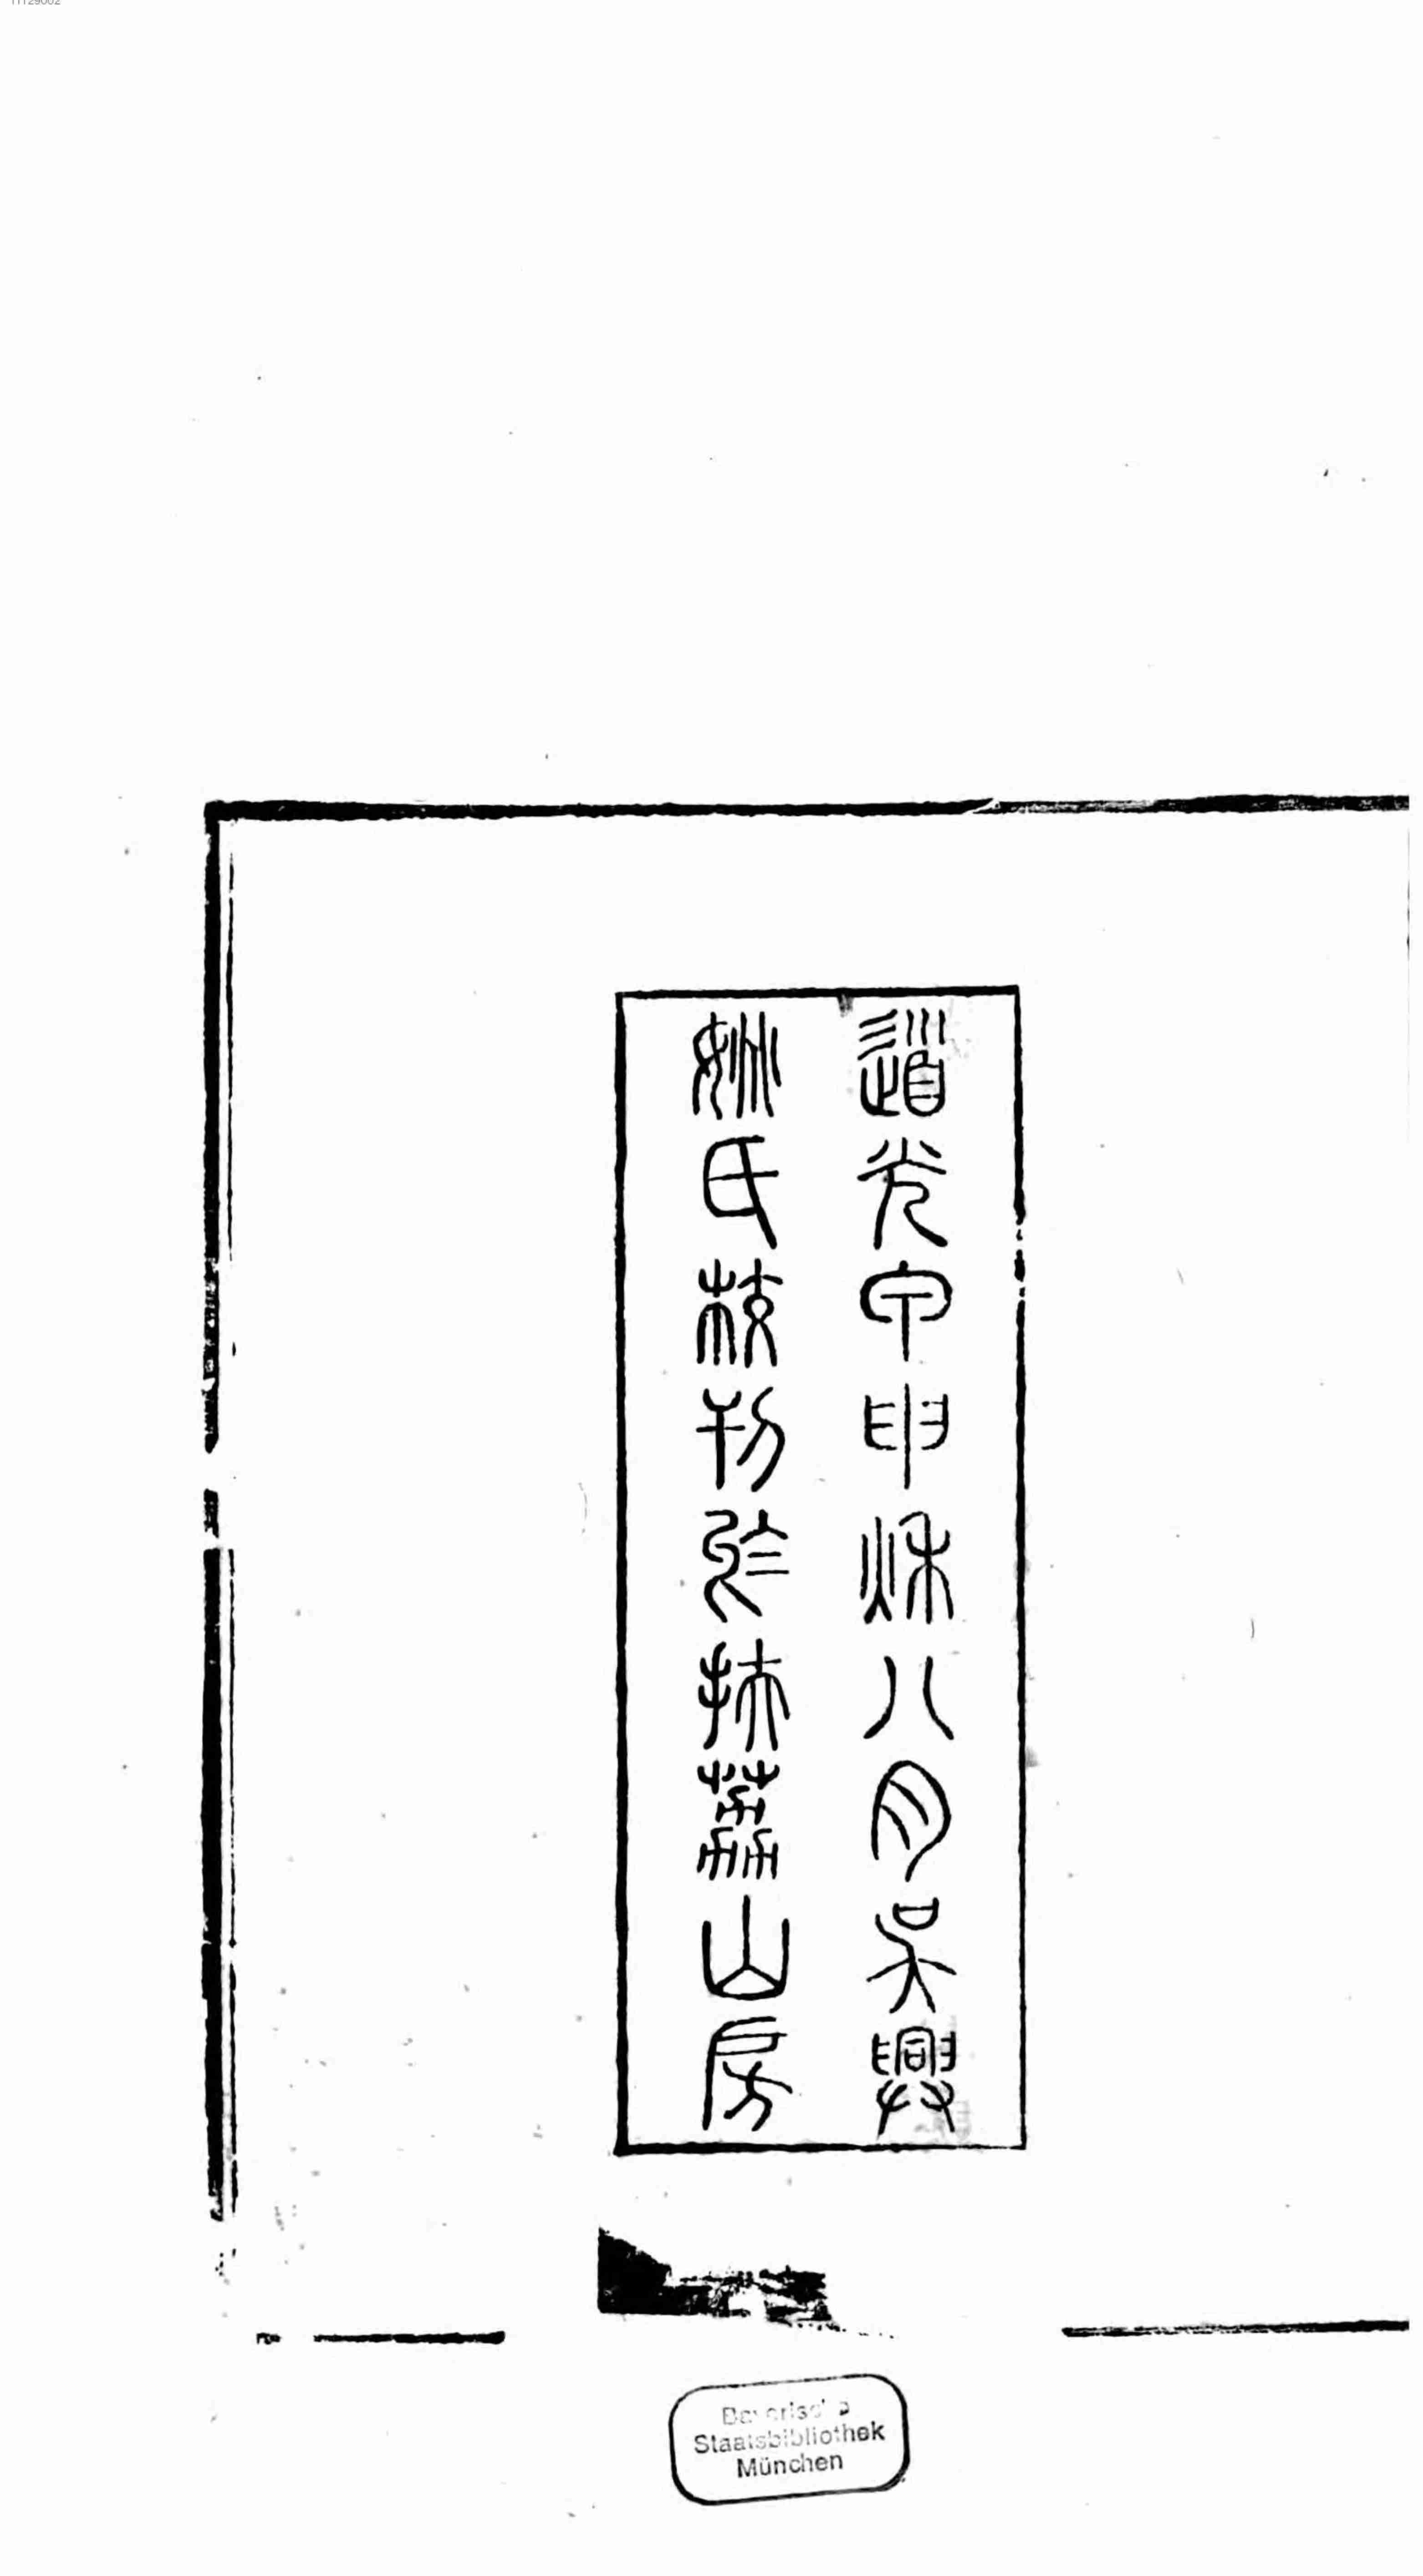 道光甲申秌八月吳興
姚氏栞刊於扶荔山房
Bayerische
Staatsbibliothek
München